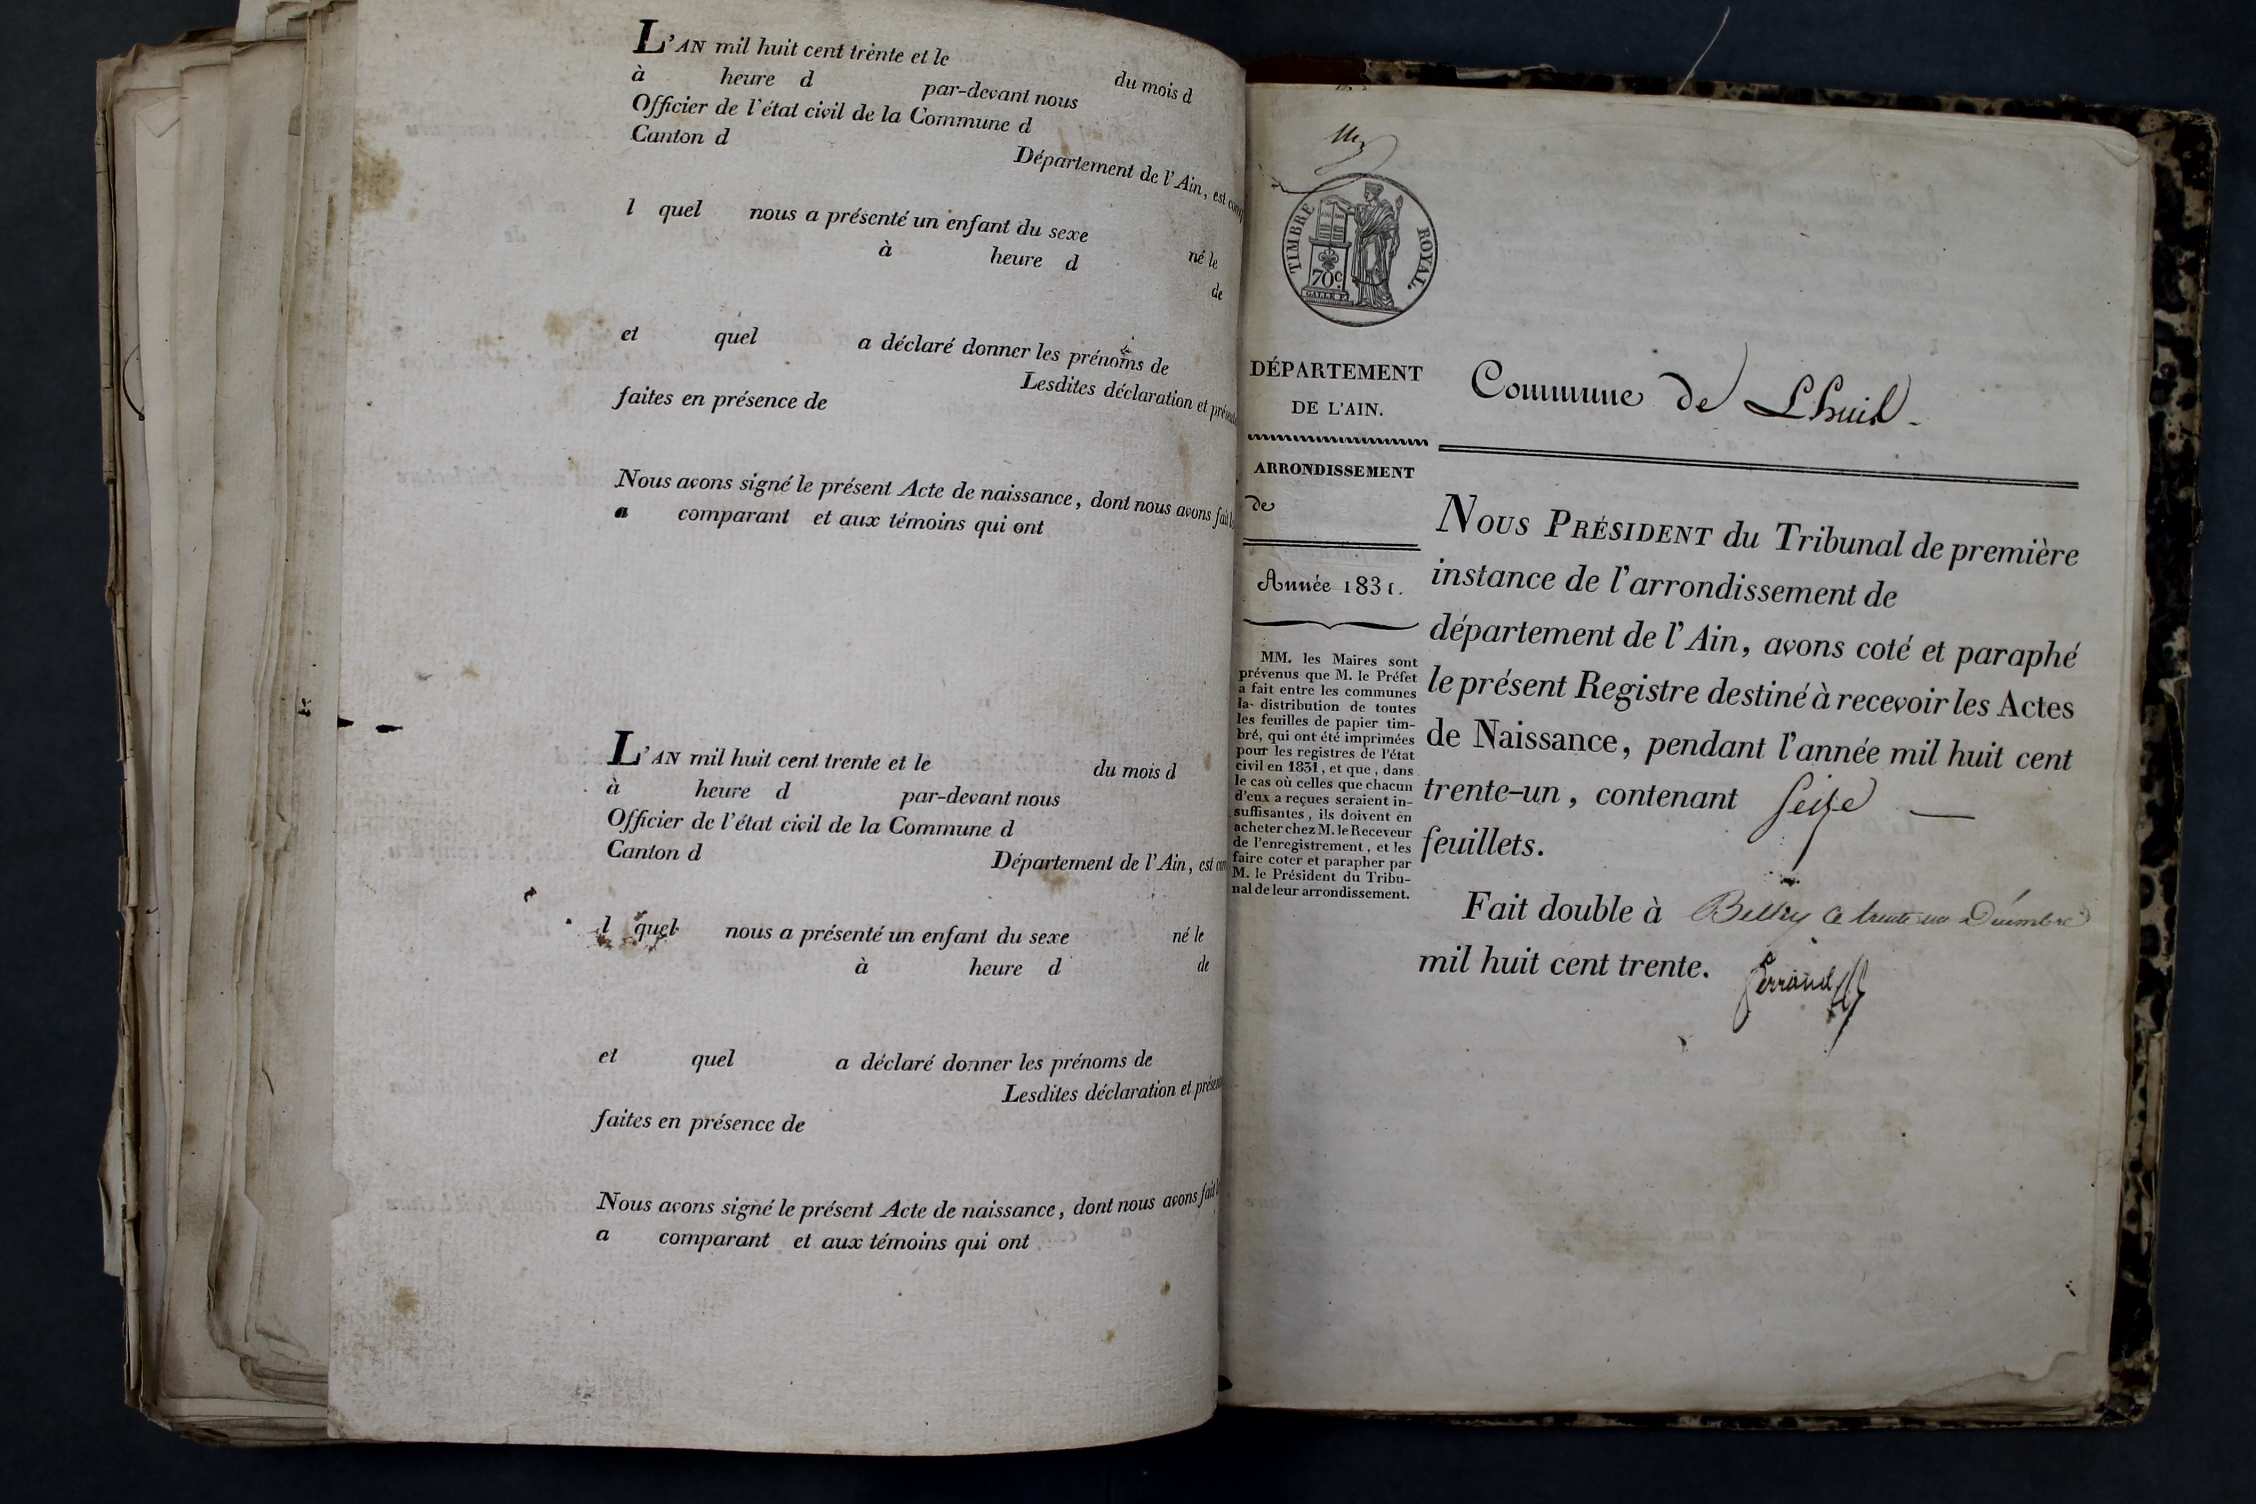 L'AN mil huit cent trente et le du mois d
à heure d par-devant nous
Officier de l'état civil de la Commune d
Canton d Département de l'Ain, est
l quel nous a présenté un enfant du sexe né le
à heure d de
et quel a déclaré donner les prénoms de
Lesdites déclaration et
faites en présence de
Nous avons signé le présent Acte de naissance, dont nous avons fait
a comparant et aux témoins qui ont
L'AN mil huit cent trente et le du mois d
à heure d par-devant nous
Officier de l'état civil de la Commune d
Canton d Département de l'Ain, est
l quel nous a présenté un enfant du sexe né le
à heure d de
et quel a déclaré donner les prénoms de
Lesdites déclaration et
faites en présence de
Nous avons signé le présent Acte de naissance, dont nous avons fait
a comparant et aux témoins qui ont
TIMBRE ROYAL.
70c.
DÉPARTEMENT
DE L'AIN.
ARRONDISSEMENT
de
Année 1831.
MM. les Maires sont
prévenus que M. le Préfet
a fait entre les communes
la distribution de toutes
les feuilles de papier tim-
bré, qui ont été imprimées
pour les registres de l'état
civil en 1831, et que, dans
le cas où celles que chacun
d'eux a reçues seraient in-
suffisantes, ils doivent en
acheter chez M. le Receveur
de l'enregistrement, et les
faire coter et parapher par
M. le Président du Tribu-
nal de leur arrondissement.
Commune de Lhuis
NOUS PRÉSIDENT du Tribunal de première
instance de l'arrondissement de
département de l'Ain, avons coté et paraphé
le présent Registre destiné à recevoir les Actes
de Naissance, pendant l'année mil huit cent
trente-un, contenant seize
feuillets.
Fait double à Belley ce trente un Décembre
mil huit cent trente.